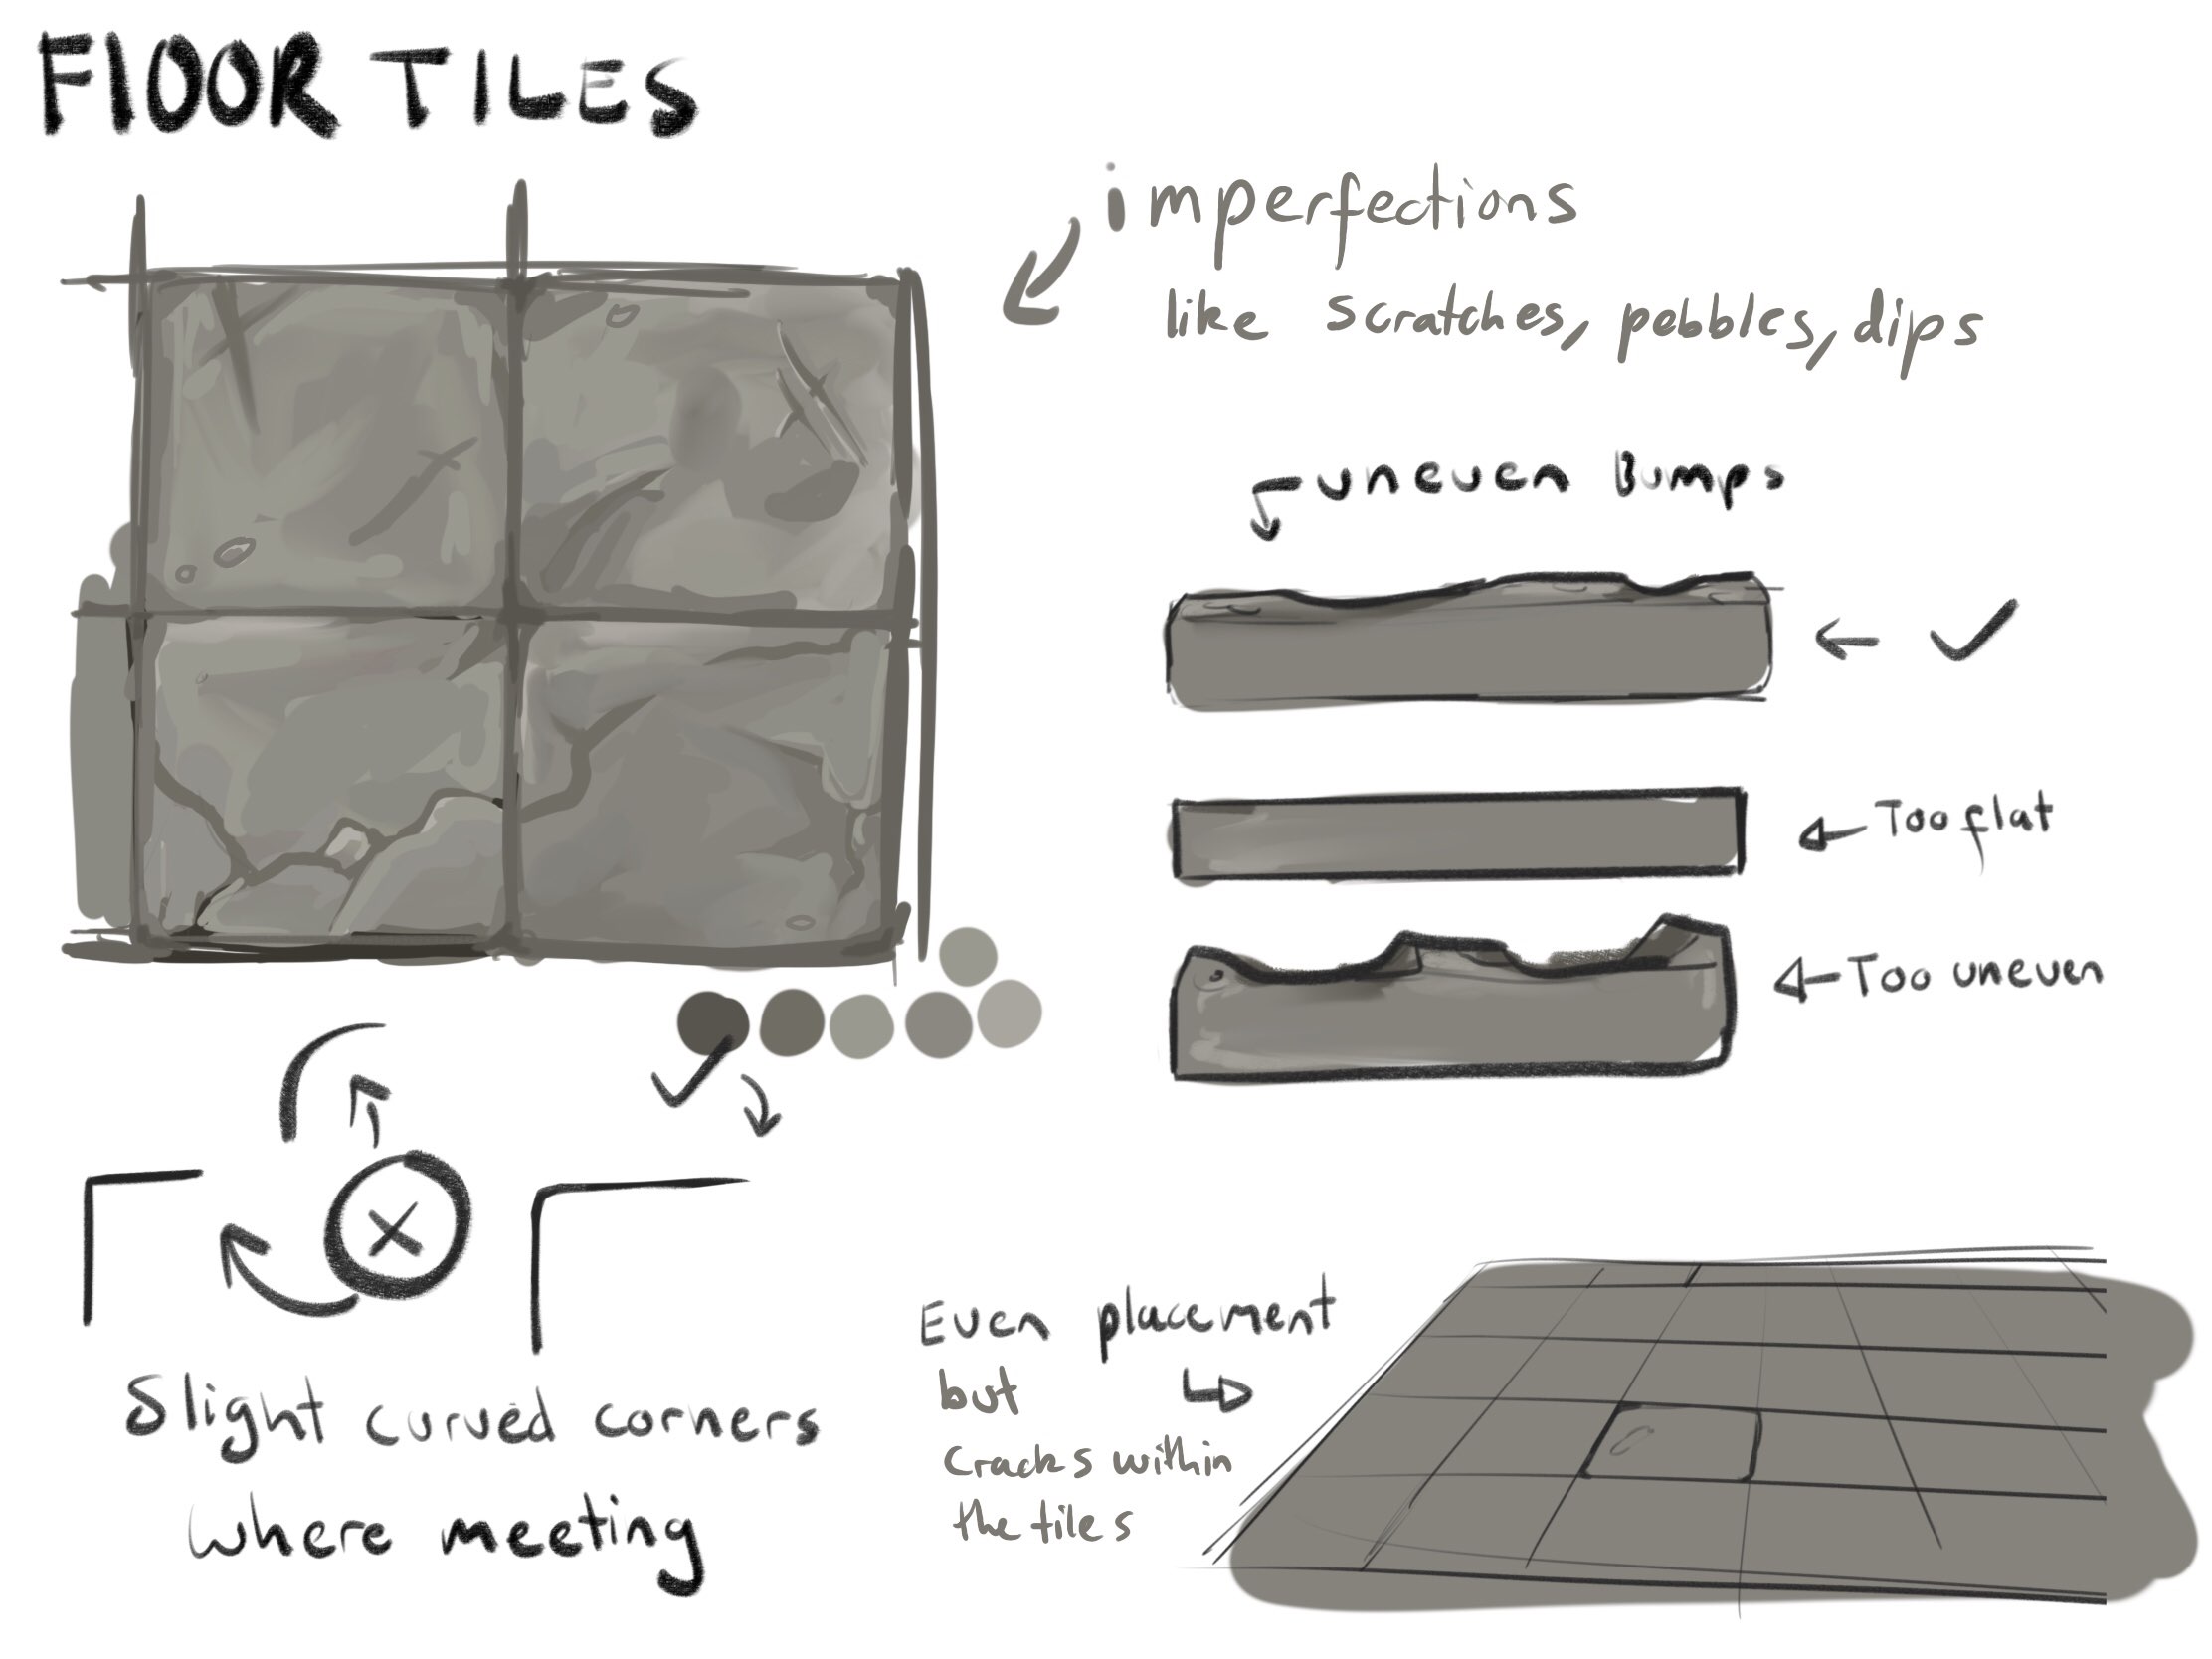 FlOOR TILES
imperfections
like scratches, pebbles, dips
uneven Bumps
Too flat
Too uneven
Slight curved corners
where meeting
Even placement
but
cracks within
the tiles